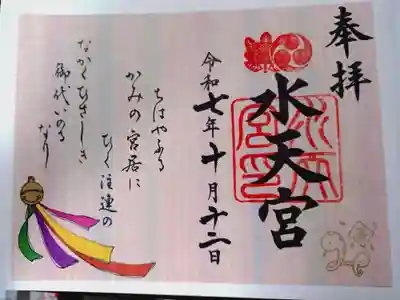 奉拝
水天宮
令和七年十月十二日
ちはやふる
かみの宮居に
ひく注連の
なかくひさしき
御代いのる
なり